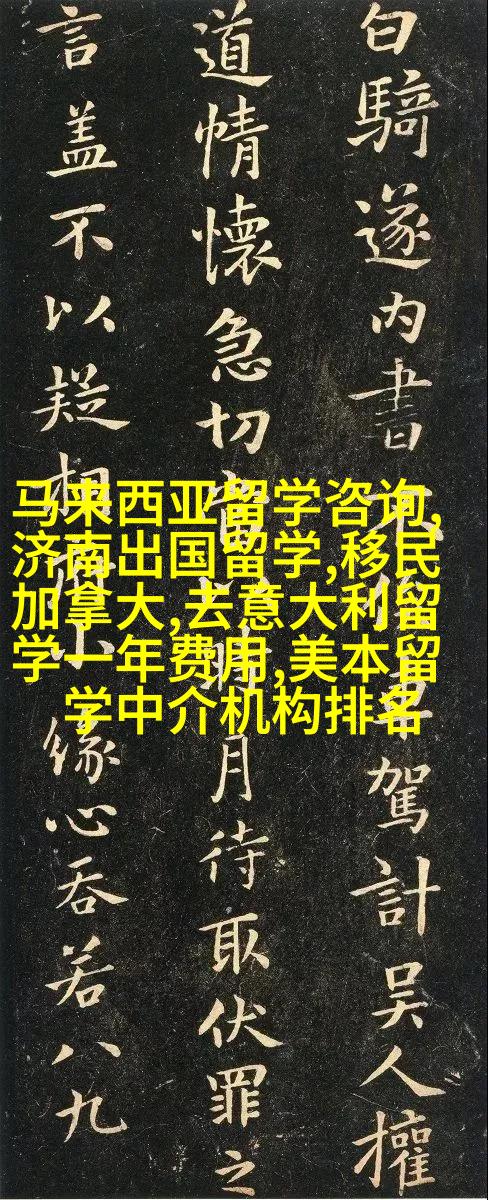 白騎遂内書不車駕計吴人權
道情懷急切當時月待取伏罪之
言盖不以疑相小緣心吞若八九
马来西亚留学咨询,
济南出国留学,移民
加拿大,去意大利留
学一年费用,美本留
学中介机构排名